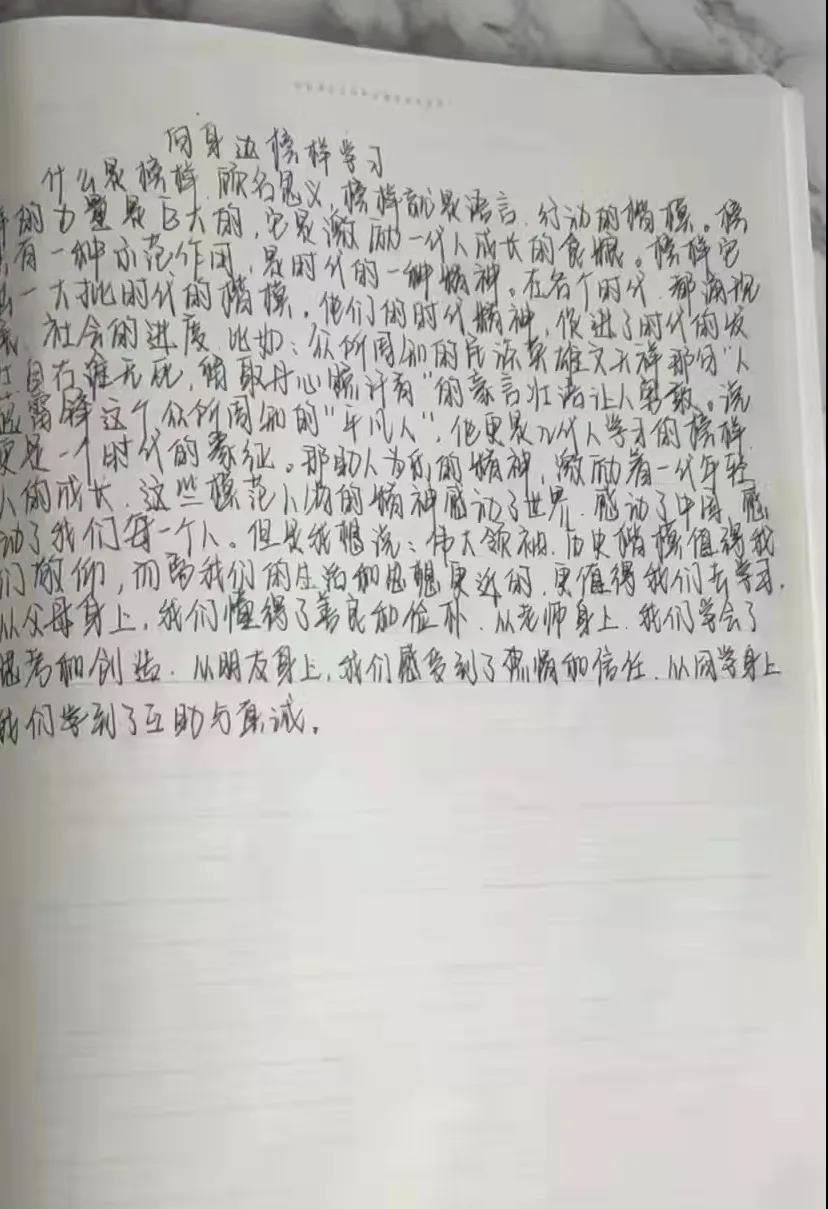 向身边榜样学习
什么是榜样,顾名思义,榜样就是语言、行动的楷模。榜
样的力量是巨大的,它是激励一代人成长的食粮。榜样它
具有一种示范作用,是时代的一种精神。在各个时代,都涌现
一大批时代的楷模,他们的时代精神,促进了时代的发
展,社会的进度,比如:众所周知的民族英雄文天祥那份“人
生自古谁无死,留取丹心照汗青”的豪言壮语让人勇敢。说
雷锋这个众所周知的“平凡人”,他更是几代人学习的榜样,
更是一个时代的象征。那助人为乐的精神,激励着一代年轻
人的成长,这些模范人物的精神感动了世界,感动了中国,感
动了我们每一个人。但是我想说:伟大领袖,历史楷模值得我
们敬仰,而留我们的生活和思想更近的,更值得我们去学习,
从父母身上,我们懂得了善良和俭朴,从老师身上,我们学会了
思考和创造,从朋友身上,我们感受到了热情和信任,从同学身上
我们学到了互助与真诚。